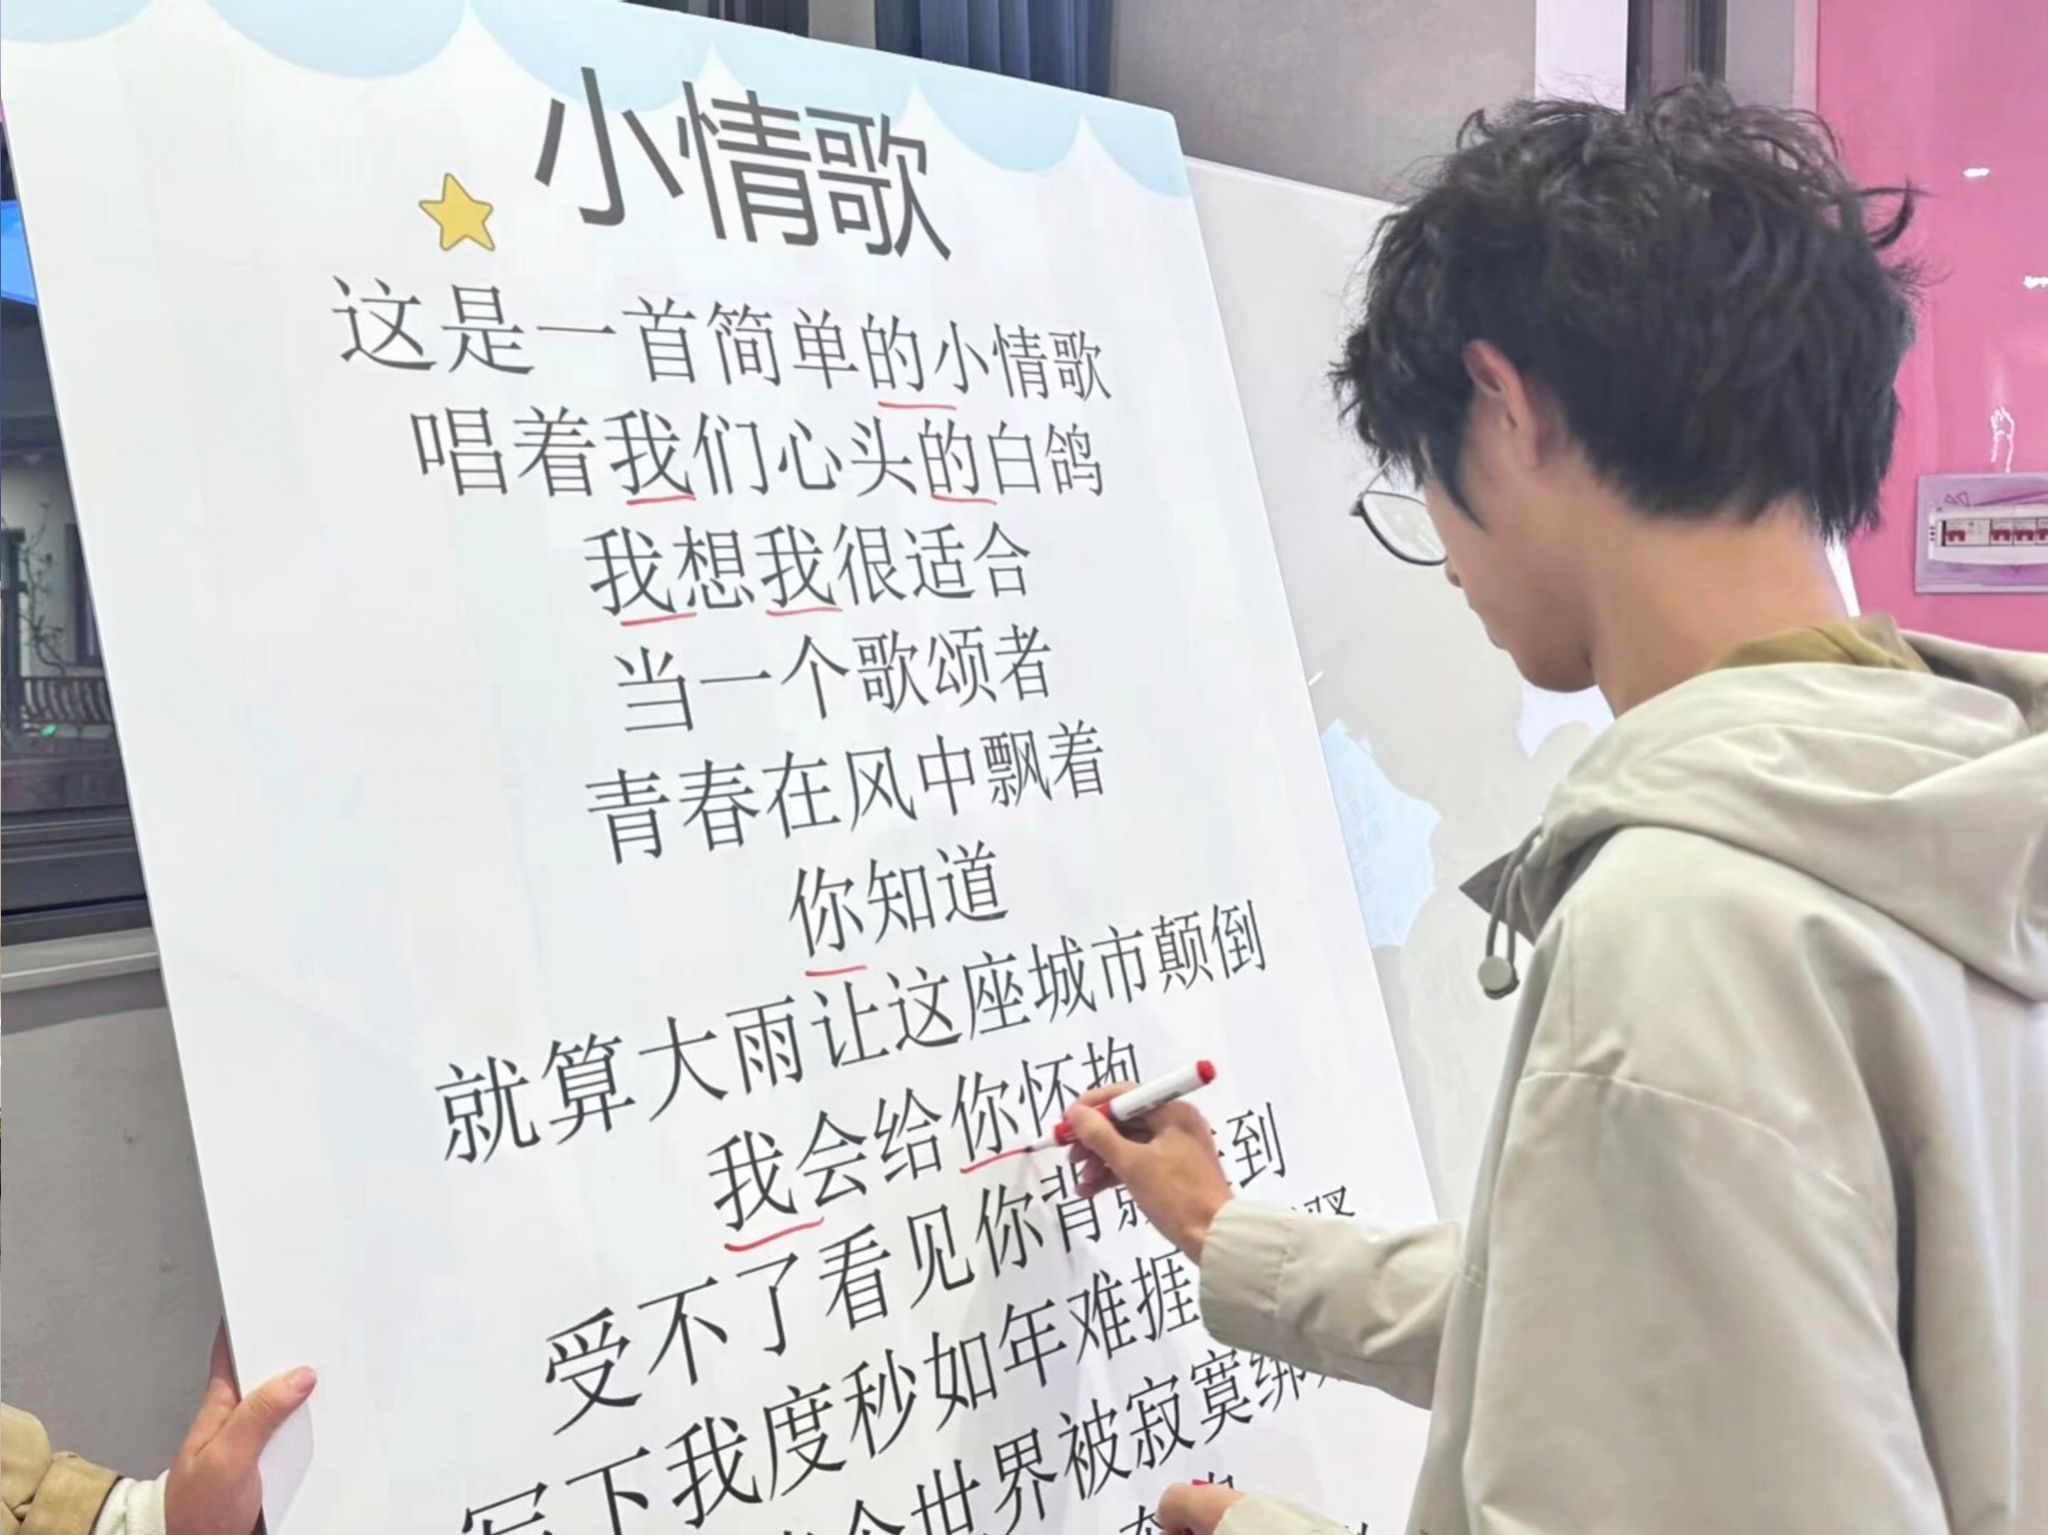 小情歌
这是一首简单的小情歌
唱着我们心头的白鸽
我想我很适合
当一个歌颂者
青春在风中飘着
你知道
就算大雨让这座城市颠倒
我会给你怀抱
受不了看见你背影来到
写下我度秒如年难捱
个世界被寂寞绑